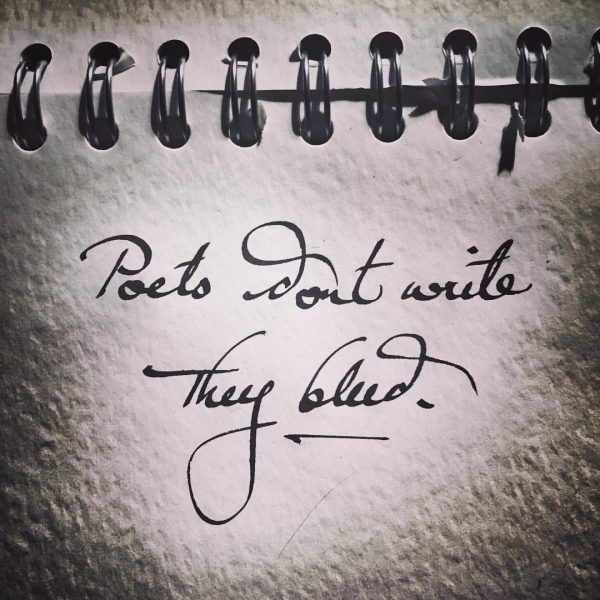 Poets dont write
they bleed.